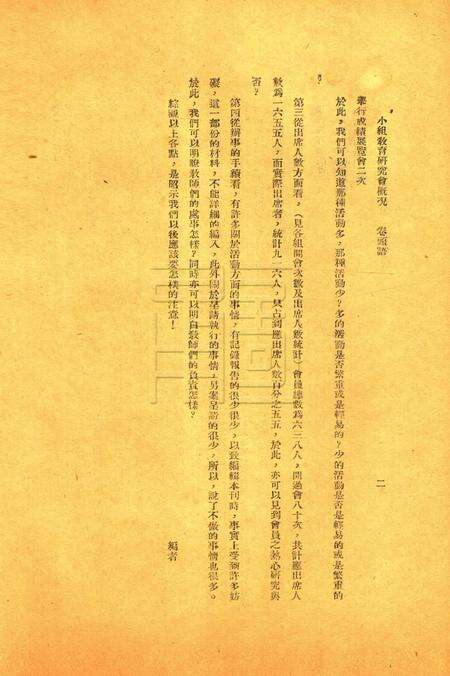 小組教育研究會概況　卷頭語　二
舉行成績展覽會二次
於此，我們可以知道那種活動多，那種活動少？多的活動是否繁重或是輕易的？少的活動是否是輕易的或是繁重的
？
第三從出席人數方面看，（見各組開會次數及出席人數統計）會員總數為六三八人，開過會八十次，共計應出席人
數為一六五五人，而實際出席者，統計九一六人，只占到應出席人數百分之五五，於此，亦可以見到會員之熱心研究與
否？
第四從辦事的手續看，有許多關於活動方面的事情，有記錄報告的很少很少，以致編輯本刊時，事實上受到許多妨
礙，這一部份的材料，不能詳細的編入，此外關於呈請執行的事情，另案呈請的很少，所以，說了不做的事情也很多。
於此，我們可以明瞭教師們的處事怎樣？同時亦可以明白教師們的負責怎樣？
綜演以上各點，是照示我們以後應該要怎樣的注意！
編者